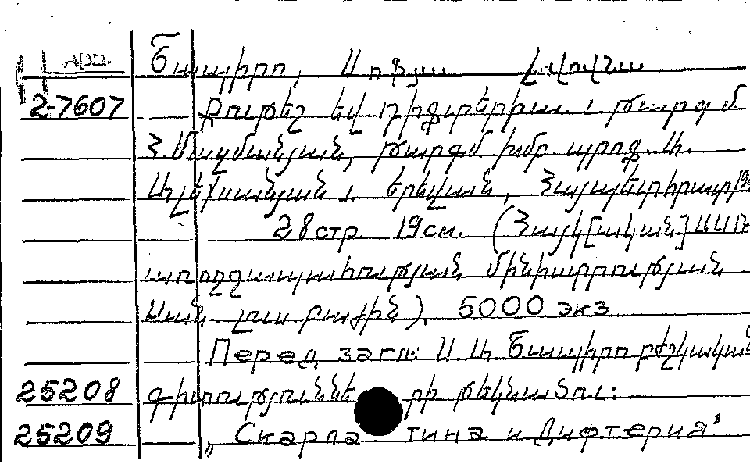 Շապիրո, Սոֆյա Լվովնա
2-7607 Քութեշ եվ դիֆտերիա. թարգմ
Հ. Մազմանյան, թարգմ խմբ պրոֆ. Ա.
Ալեքսանյան. Երեվան, Հայպետհրատ
28 стр 19 см. (Հայկ[ական] ՍՍՌ
առողջապահության մինիստրության
Սան լուս բաժին). 5000 экз
Перед загл: Ս Ա Շապիրո բժշկական
25208 գիտությունների թեկնածու:
25209 „Скарлатина и Дифтерия"